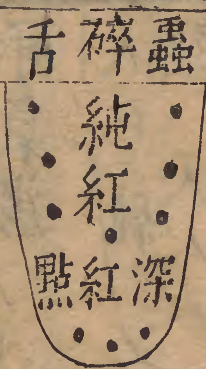 蟲碎舌
純紅
深紅點